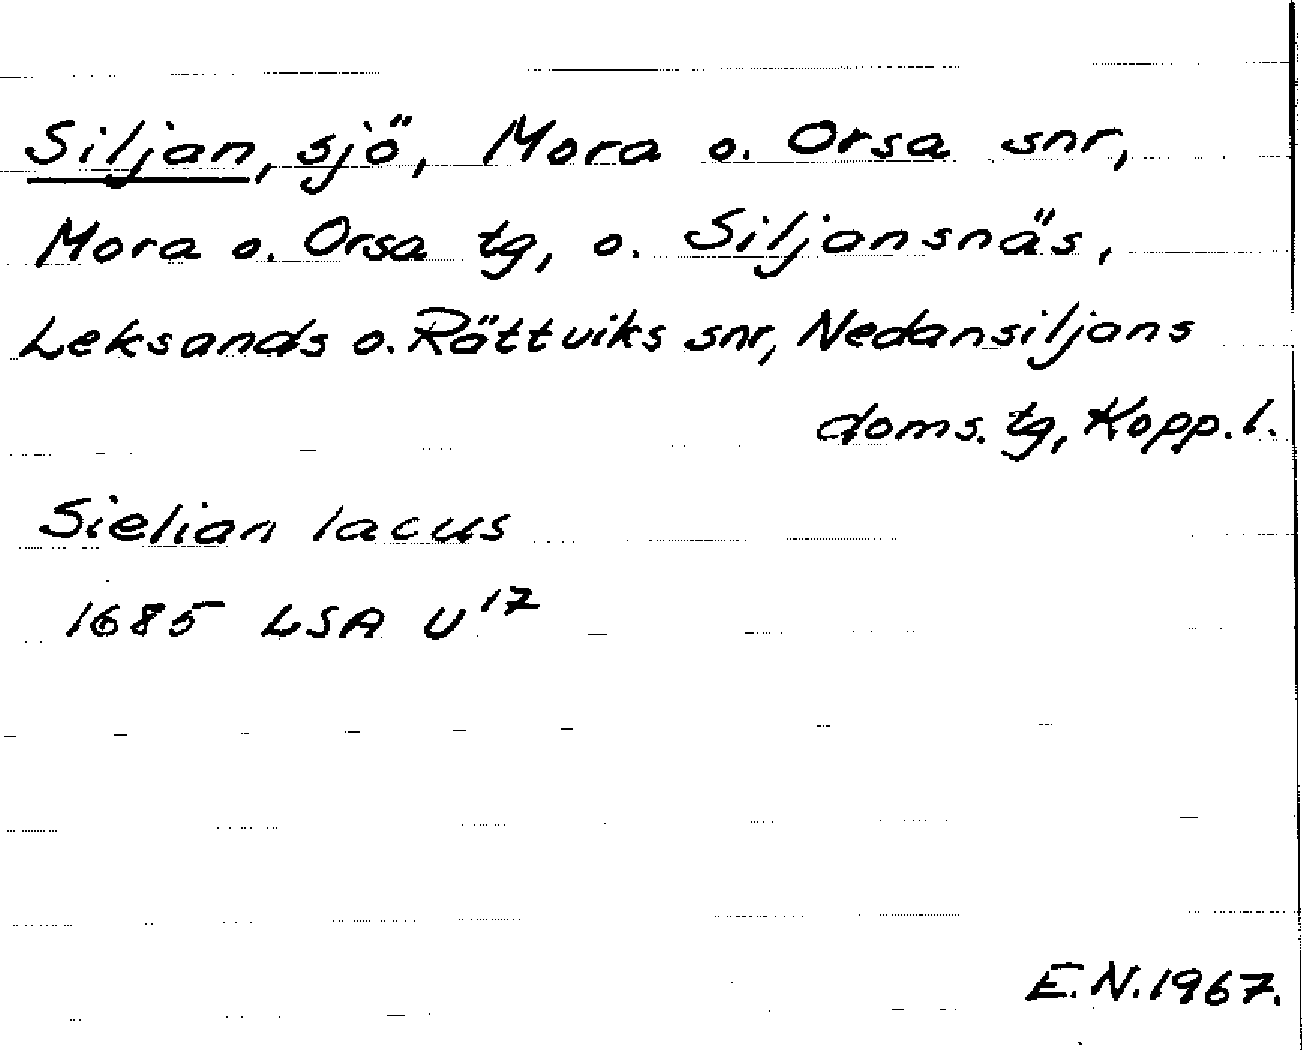 Siljan, sjö, Mora o. Orsa snr,
Mora o. Orsa tg, o. Siljansnäs,
Leksands o. Rättviks snr, Nedansiljans
doms. tg, Kopp. l.
Sielian lacus
1685 LSA U 17
E.N. 1967.